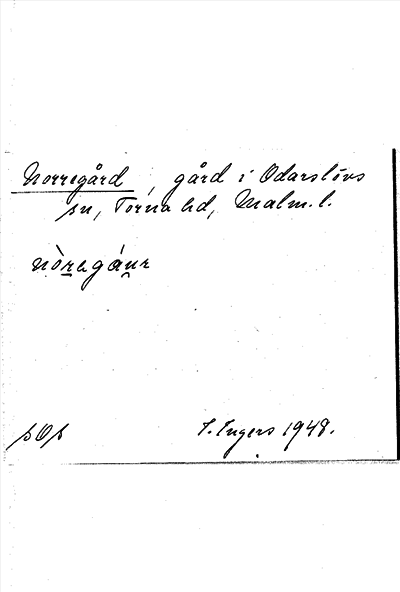 Norregård, gård i Odarslövs
sn, Torna hd, Malm. l.
nòregáur
sOs
I. Ingers 1948.